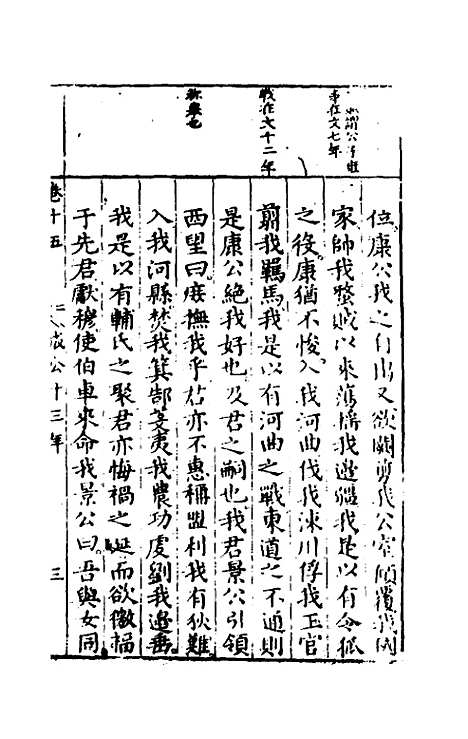 事在文七年
戰在文十二年
稱舉也
位康公我之自出又欲闕剪我公室傾覆我國
家帥我蟊賊以來蕩搖我邊疆我是以有令狐
之役康猶不悛入我河曲伐我涑川俘我王官
翦我羈馬我是以有河曲之戰東道之不通則
是康公絕我好也及君之嗣也我君景公引領
西望曰庶撫我乎君亦不惠稱盟利我有狄難
入我河縣焚我箕郜芟夷我農功虔劉我邊垂
我是以有輔氏之聚君亦悔禍之延而欲徼福
于先君獻穆使伯車來命我景公曰吾與女同
卷十五 成公十三年 三